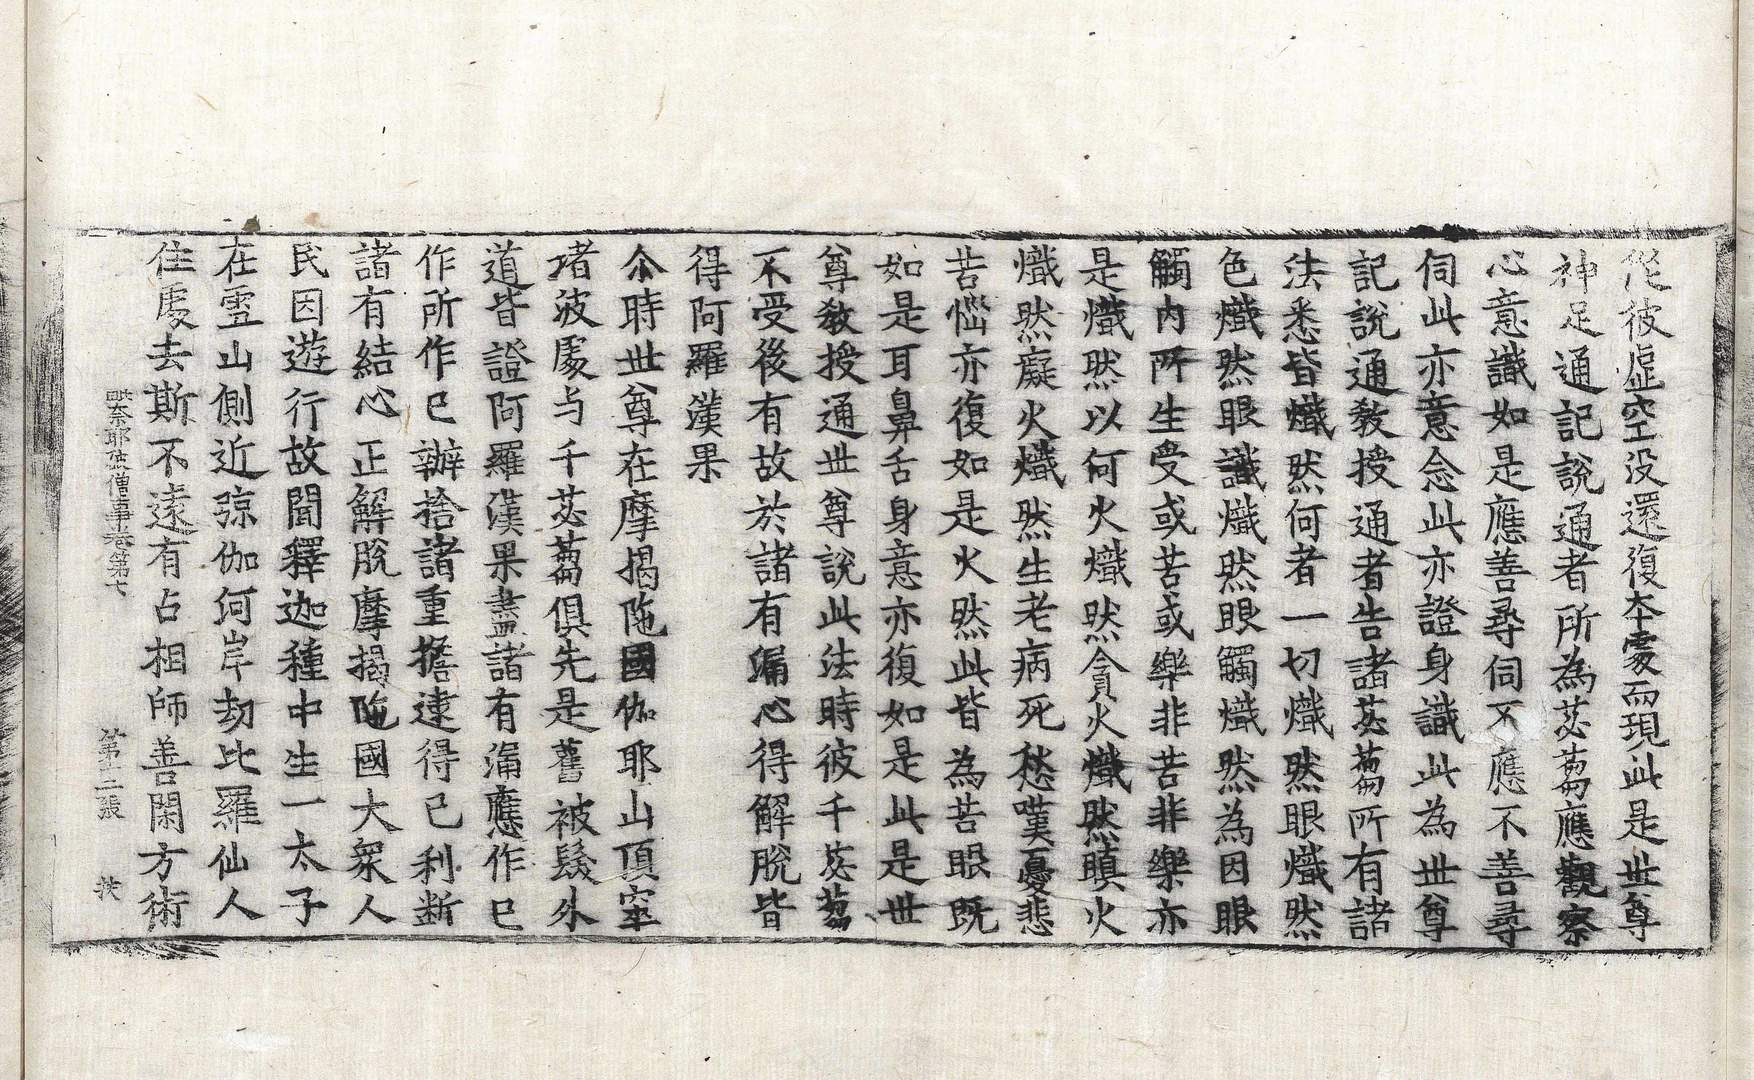 從彼虛空没還復本處而現此是世尊
神足通記說通者所為苾蒭應觀察
心意識如是應善尋伺不應不善尋
伺此亦意念此亦證身識此為世尊
記說通教授通者告諸苾蒭所有諸
法悉皆熾然何者一切熾然眼熾然
色熾然眼識熾然眼觸熾然為因眼
觸内所生受或苦或樂非苦非樂亦
是熾然以何火熾然貪火熾然瞋火
熾然癡火熾然生老病死愁嘆憂悲
苦惱亦復如是火然此皆為苦眼既
如是耳鼻舌身意亦復如是此是世
尊教授通世尊說此法時彼千苾蒭
不受後有故於諸有漏心得解脫皆
得阿羅漢果
尒時世尊在摩揭陁國伽耶山頂窣
堵波處与千苾蒭俱先是舊被髮外
道皆證阿羅漢果盡諸有漏應作已
作所作已辦捨諸重擔逮得已利斷
諸有結心正解脫摩揭陁國大衆人
民因遊行故聞釋迦種中生一太子
在雪山側近弶伽河岸劫比羅仙人
住處去斯不遠有占相師善閑方術
毗奈耶破僧事卷第七 第十二張 挾